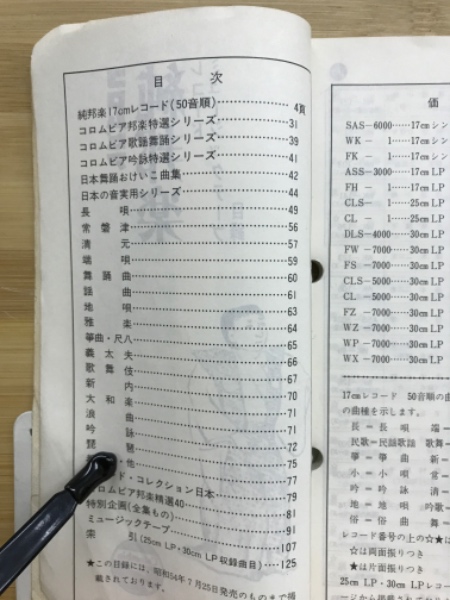 目 次
純邦楽17cmレコード(50音順)……………4頁
コロムビア邦楽特選シリーズ……………31
コロムビア歌謡舞踊シリーズ……………39
コロムビア吟詠特選シリーズ……………41
日本舞踊おけいこ曲集……………42
日本の音実用シリーズ……………44
長 唄……………49
常 磐 津……………56
清 元……………57
端 唄……………59
舞 踊 曲……………60
謡 曲……………61
地 唄……………63
雅 楽……………64
箏曲・尺八……………65
義 太 夫……………66
歌 舞 伎……………67
新 内……………70
大 和 楽……………71
浪 曲……………71
吟 詠……………72
琵 琶……………75
・他……………77
ド・コレクション日本……………79
ロムビア邦楽精選40……………81
特別企画(全集もの)……………91
ミュージックテープ……………107
索 引(25cm LP・30cm LP収録曲目)……125
★この目録には、昭和54年7月25日発売のものまで掲
載されております。
価
SAS-6000……17cmシン
WK - 1……17cmシン
FK - 1……17cmシン
ASS-3000……17cm LP
FH - 1……17cm LP
CLS- 1……25cm LP
CL - 1……25cm LP
DLS-4000……30cm LP
FW -7000……30cm LP
FS -7000……30cm LP
CLS-5000……30cm LP
CL -5000……30cm LP
FZ -7000……30cm LP
WZ -7000……30cm LP
WP -7000……30cm LP
WX -7000……30cm LP
17cmレコード 50音順の曲
の曲種を示します。
長 = 長 唄 端 =
民歌=民謡歌謡 歌舞=
箏 = 箏 曲 新 =
小 = 小 唄 常 =
吟 = 吟 詠 清 =
地 = 地 唄 吟歌=
俗 = 俗 曲 舞 =
レコード番号の上の☆★は
☆は両面振りつき
★は片面振りつき
25cm LP・30cm LPレコー
ージから掲載されており